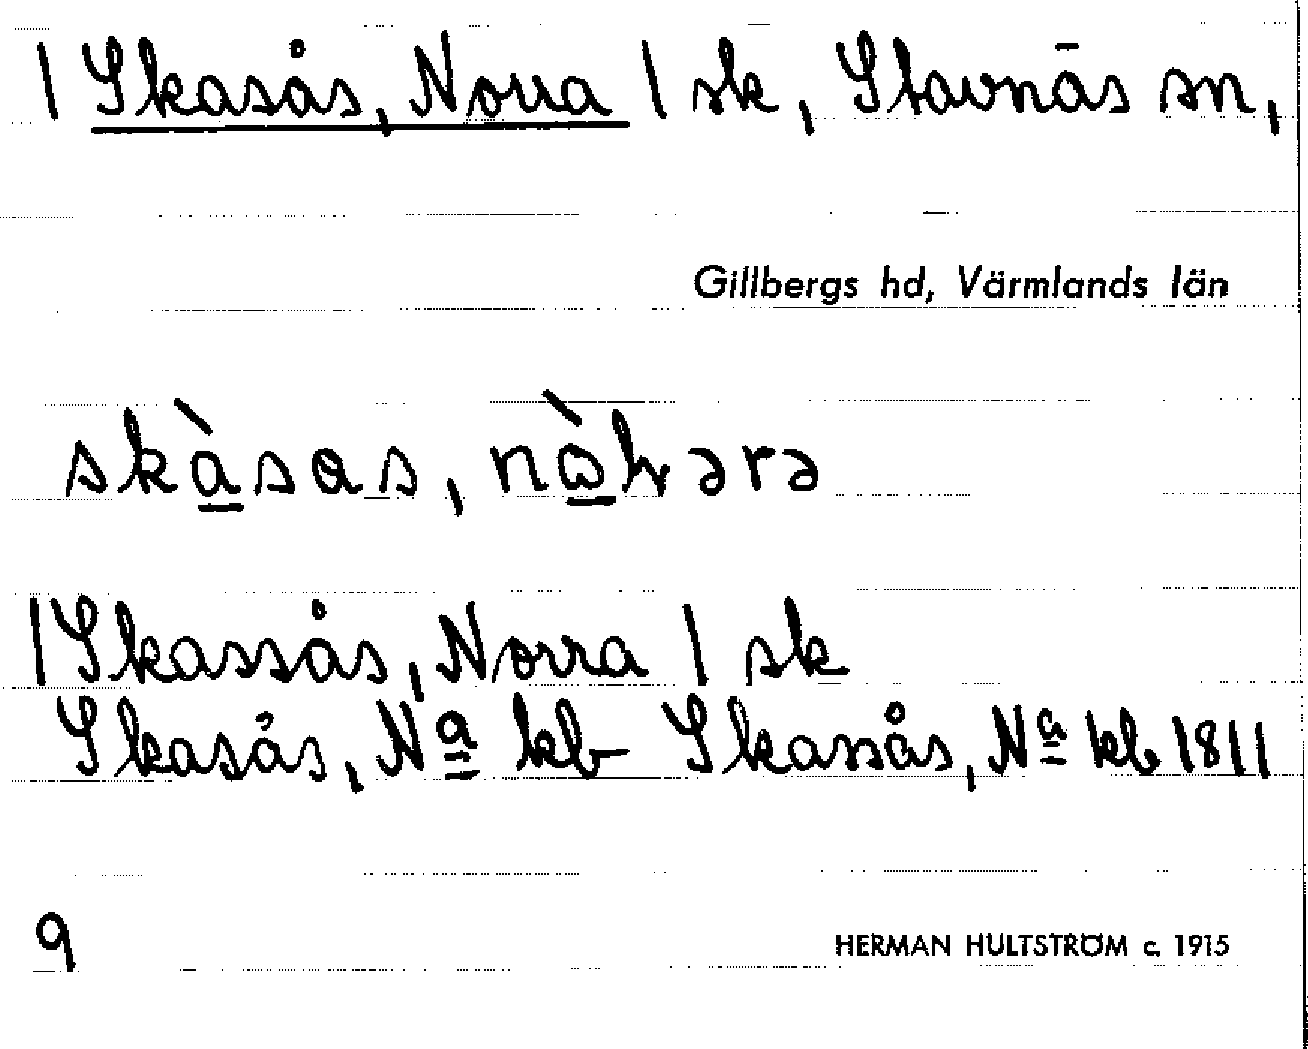 | Skasås, Norra | sk, Stavnäs sn,
Gillbergs hd, Värmlands län
skàsas,
| Skassås, Norra | sk
Skasås, Nª kb Skassås, Nª kb 1811
9
HERMAN HULTSTRÖM c. 1915